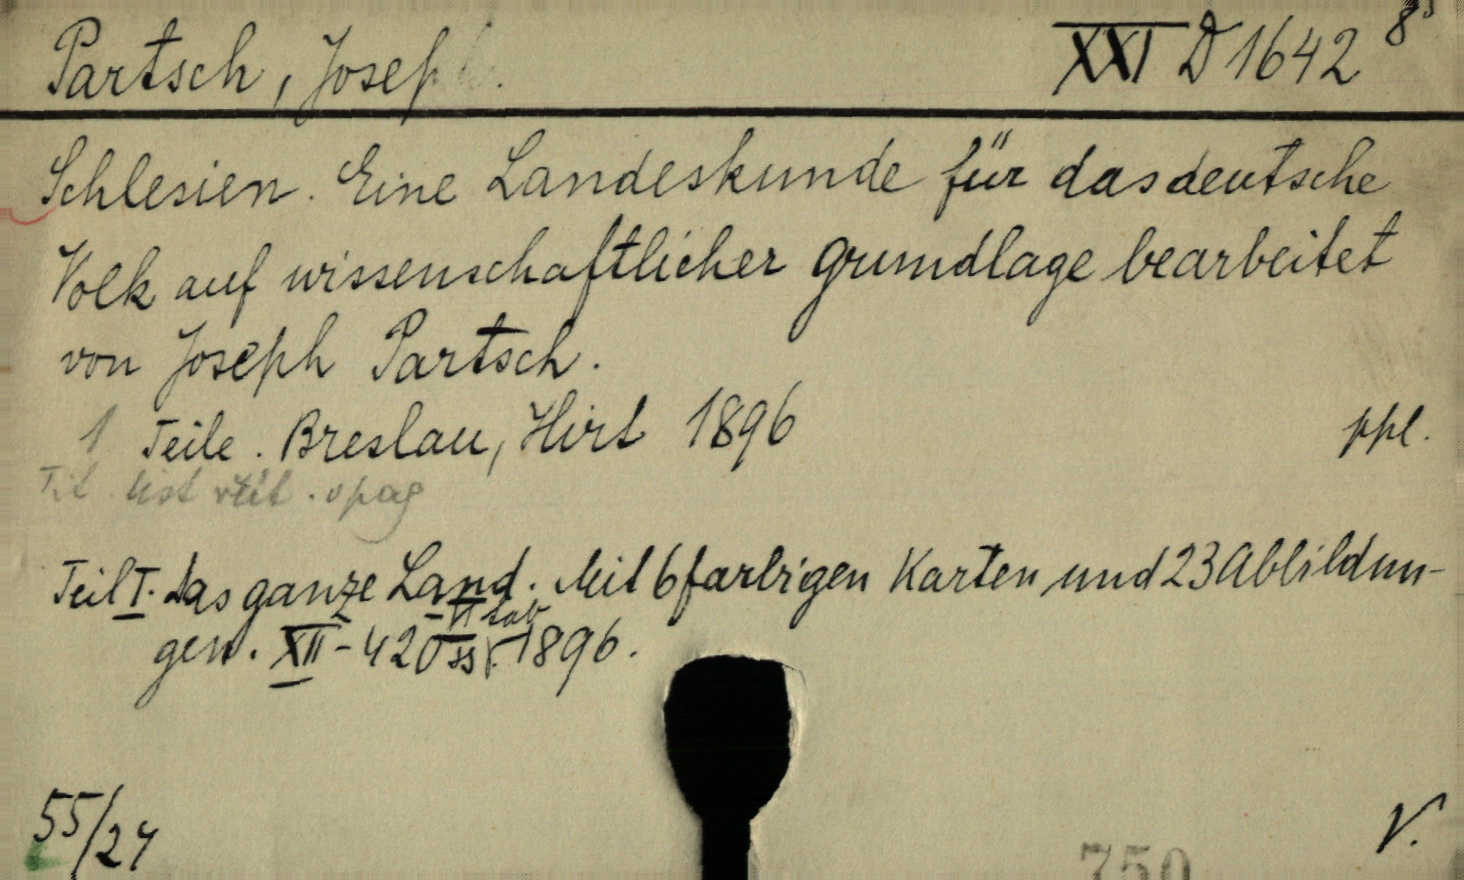 Partsch, Joseph. XXI D 1642 8°
Schlesien. Eine Landeskunde für das deutsche
Volk auf wissenschaftlicher Grundlage bearbeitet
von Joseph Partsch.
1 Teile. Breslau, Hirt 1896 ppl.
Tit
Teil I. das ganze Land. Mit 6 farbigen Karten und 23 Abbildun-
VI tab
gen. XII-420 ss. 1896.
55/27 V.
750